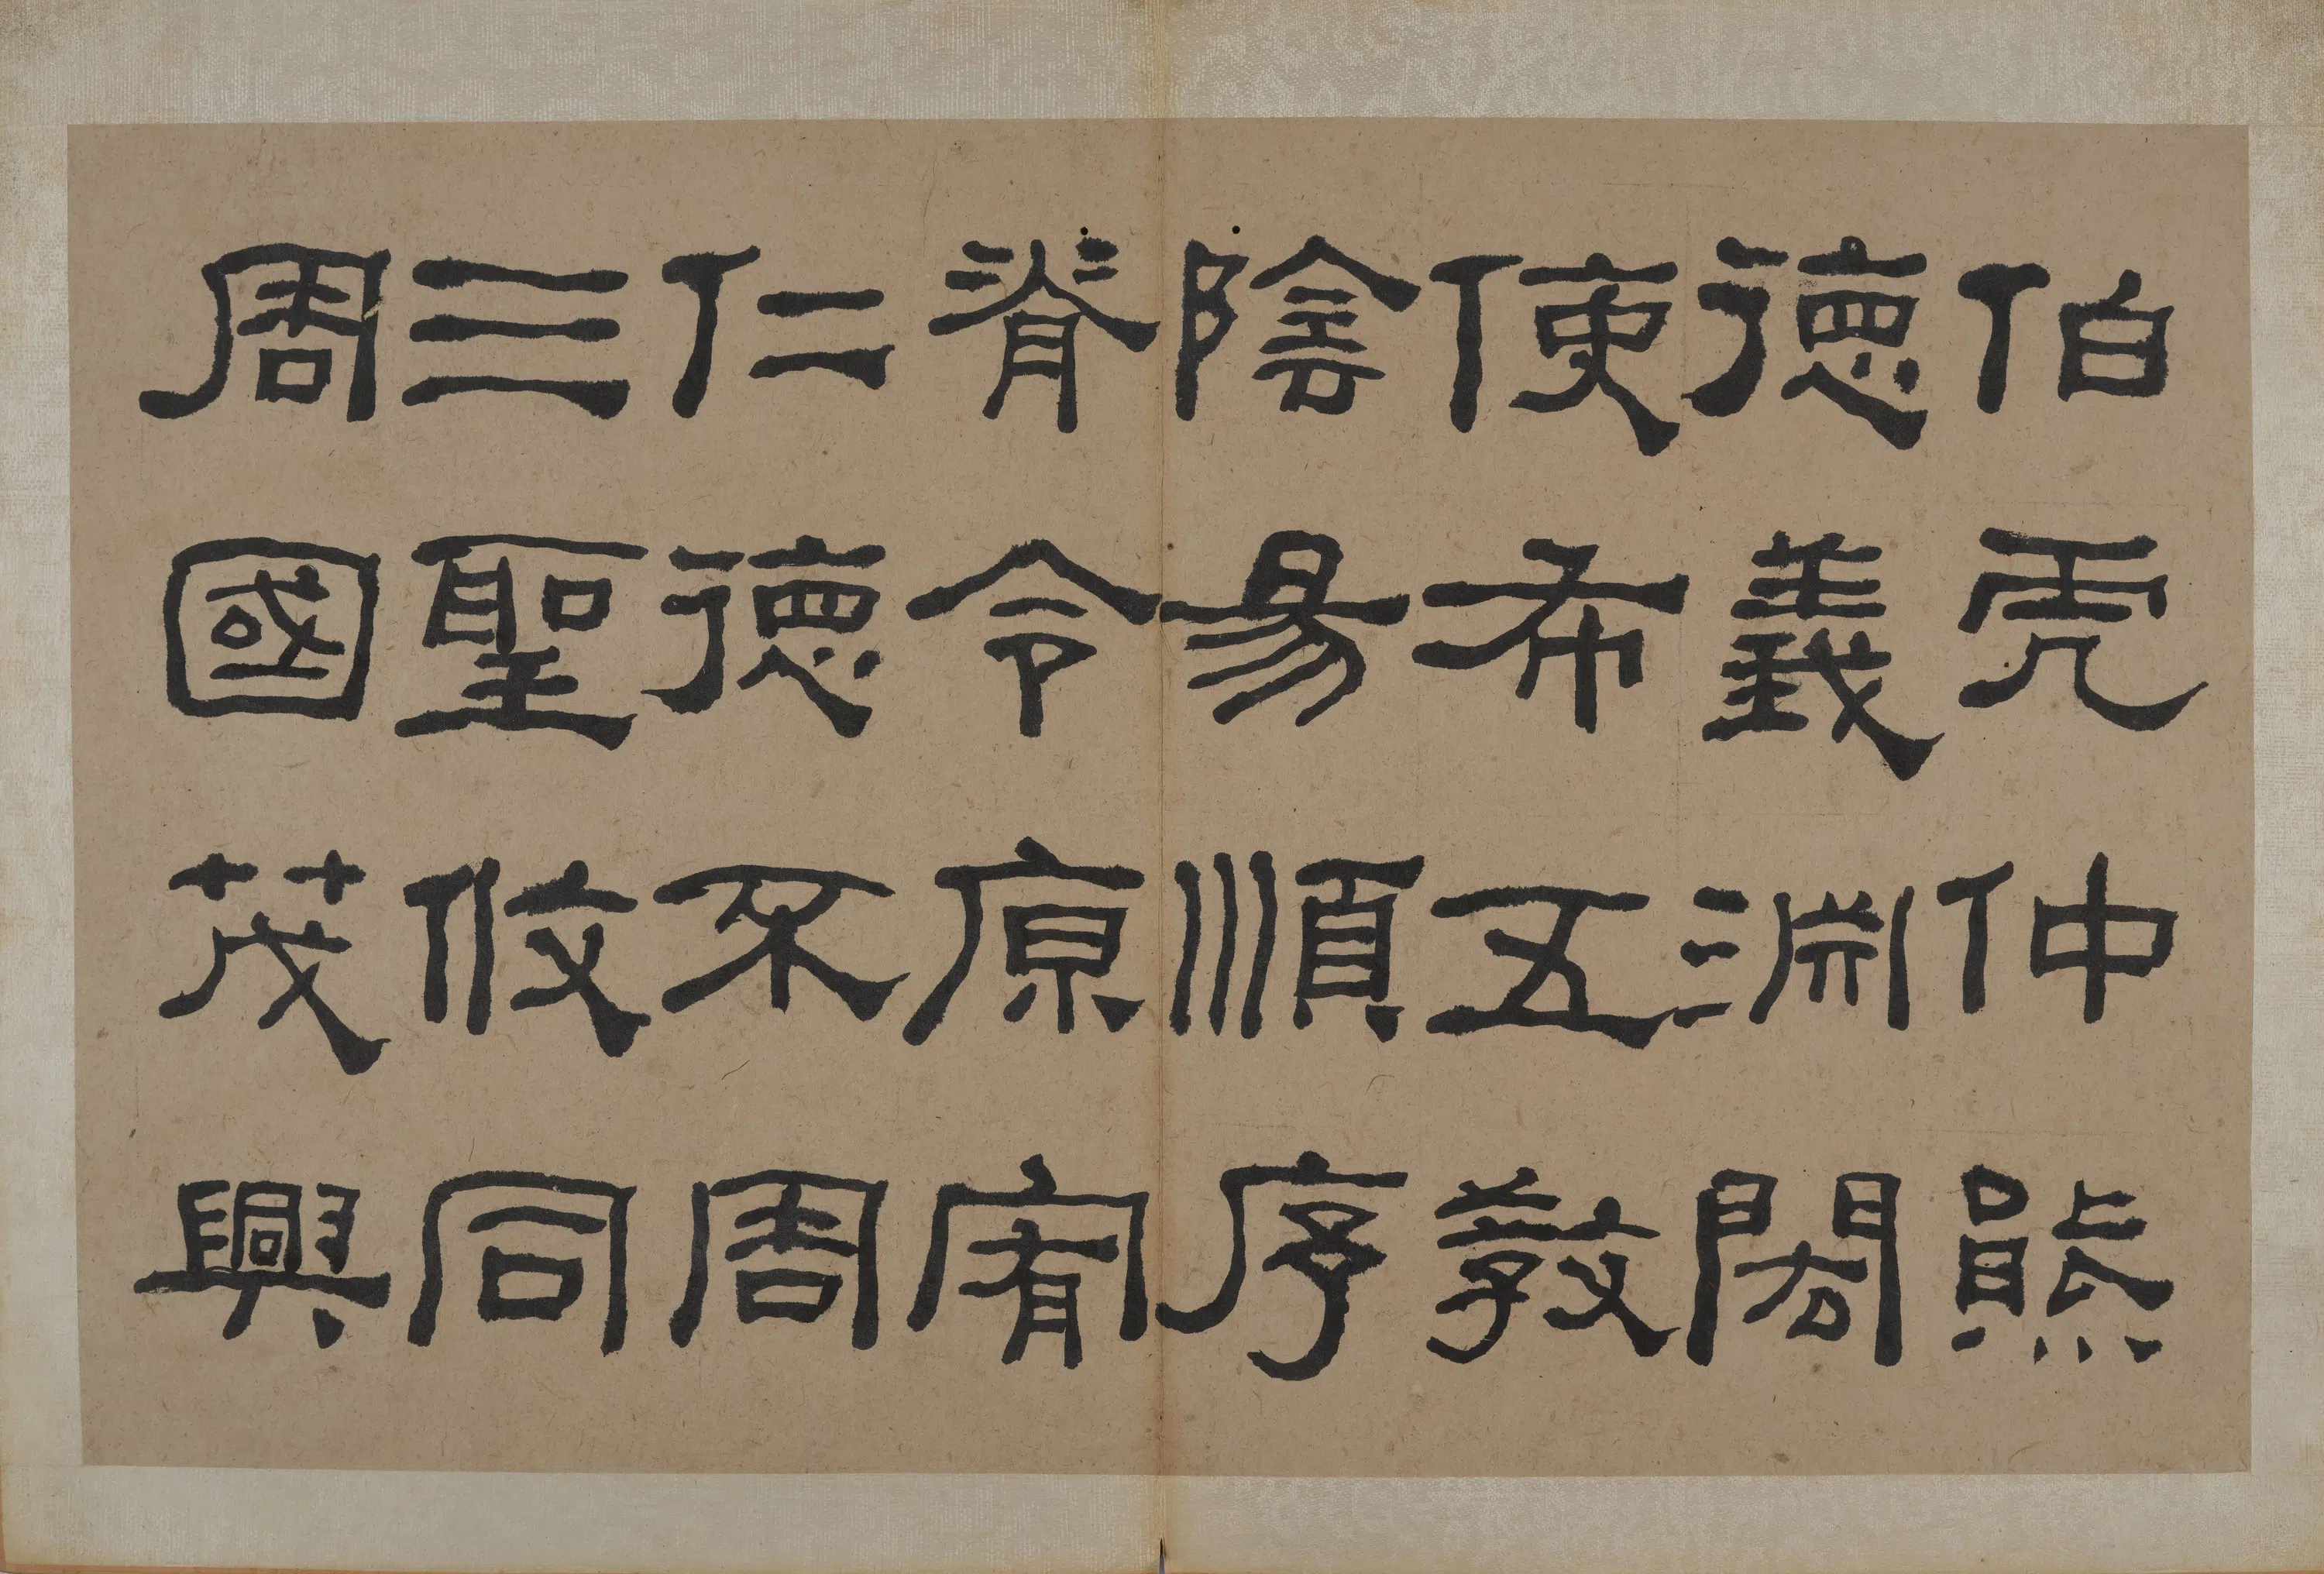 伯虎仲熊
德義淵閎
使布五教
陰昜順序
脊令原宥
仁德不周
三聖攸同
周國茂興